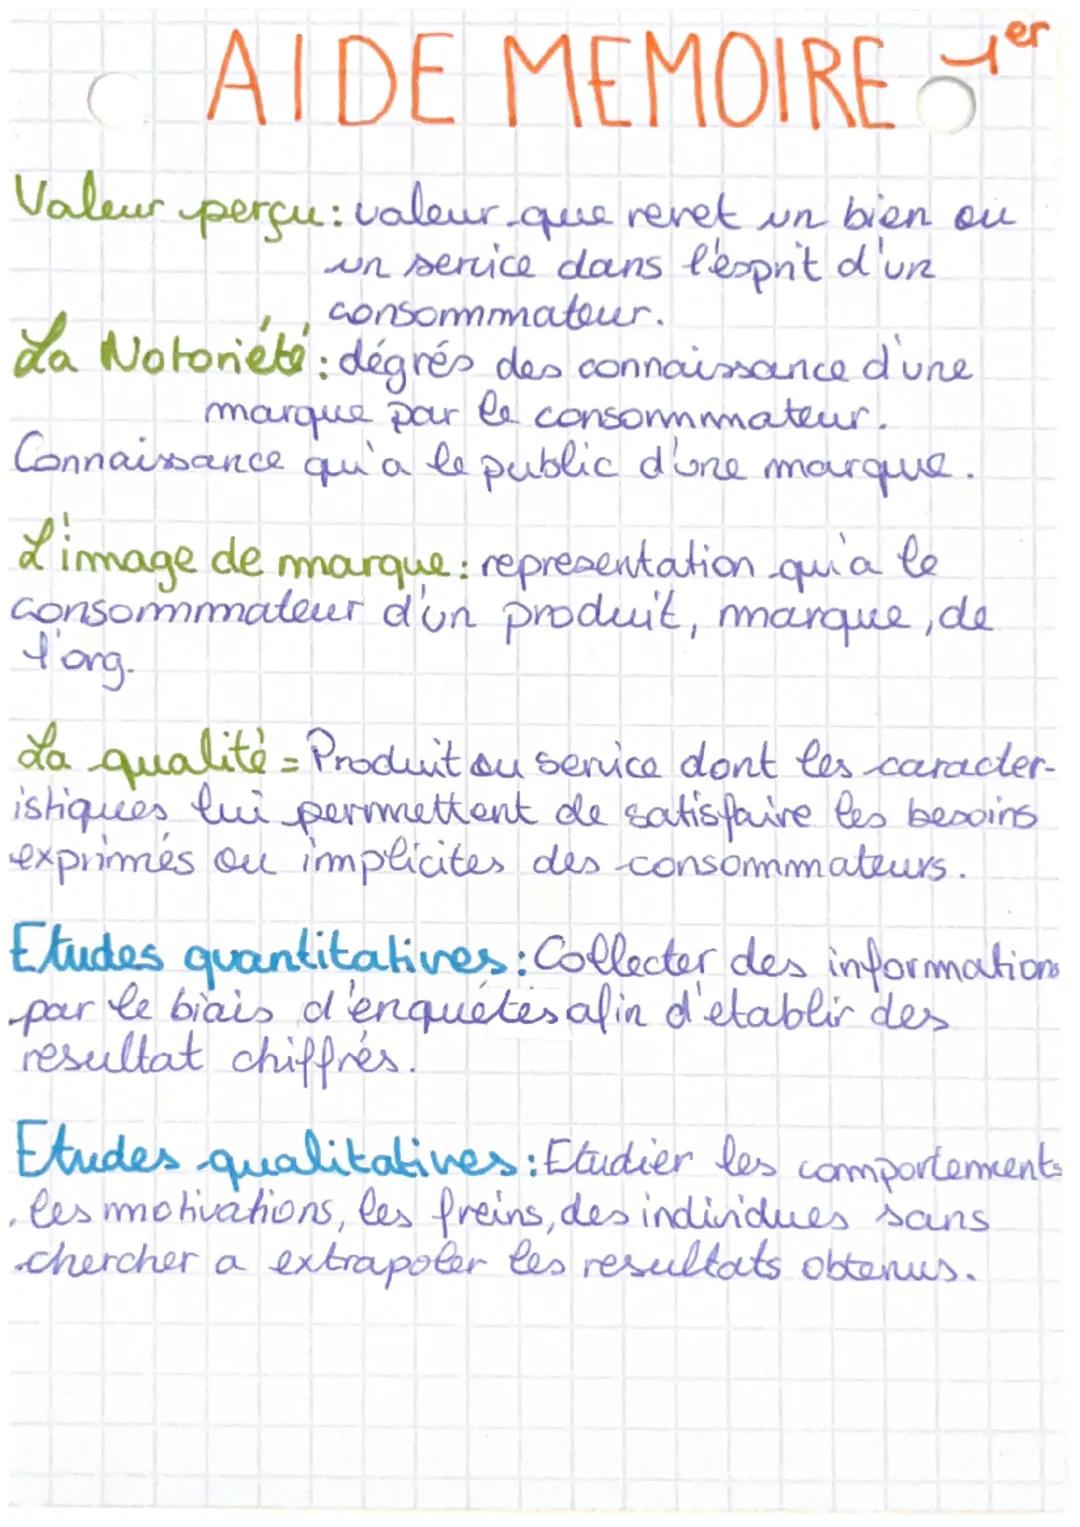 AIDE MEMOIRE 1er
Valeur perçu: valeur que revet un bien ou
un service dans l'esprit d'un
consommateur.
La Notoriété: dégrés des connaissance d'une
marque par le consommateur.
Connaissance qu'a le public d'une marque.
L'image de marque: representation qu'a le
consommateur d'un produit, marque, de
l'org.
La qualité = Produit ou service dont les caracter-
istiques lui permettent de satisfaire les besoins
exprimés ou implicites des consommateurs.
Etudes quantitatives: Collecter des informations
par le biais d'enquêtes afin d'etablir des
resultat chiffrés.
Etudes qualitatives: Etudier les comportements
, les motivations, les freins, des individues sans
chercher a extrapoler les resultats obtenus.